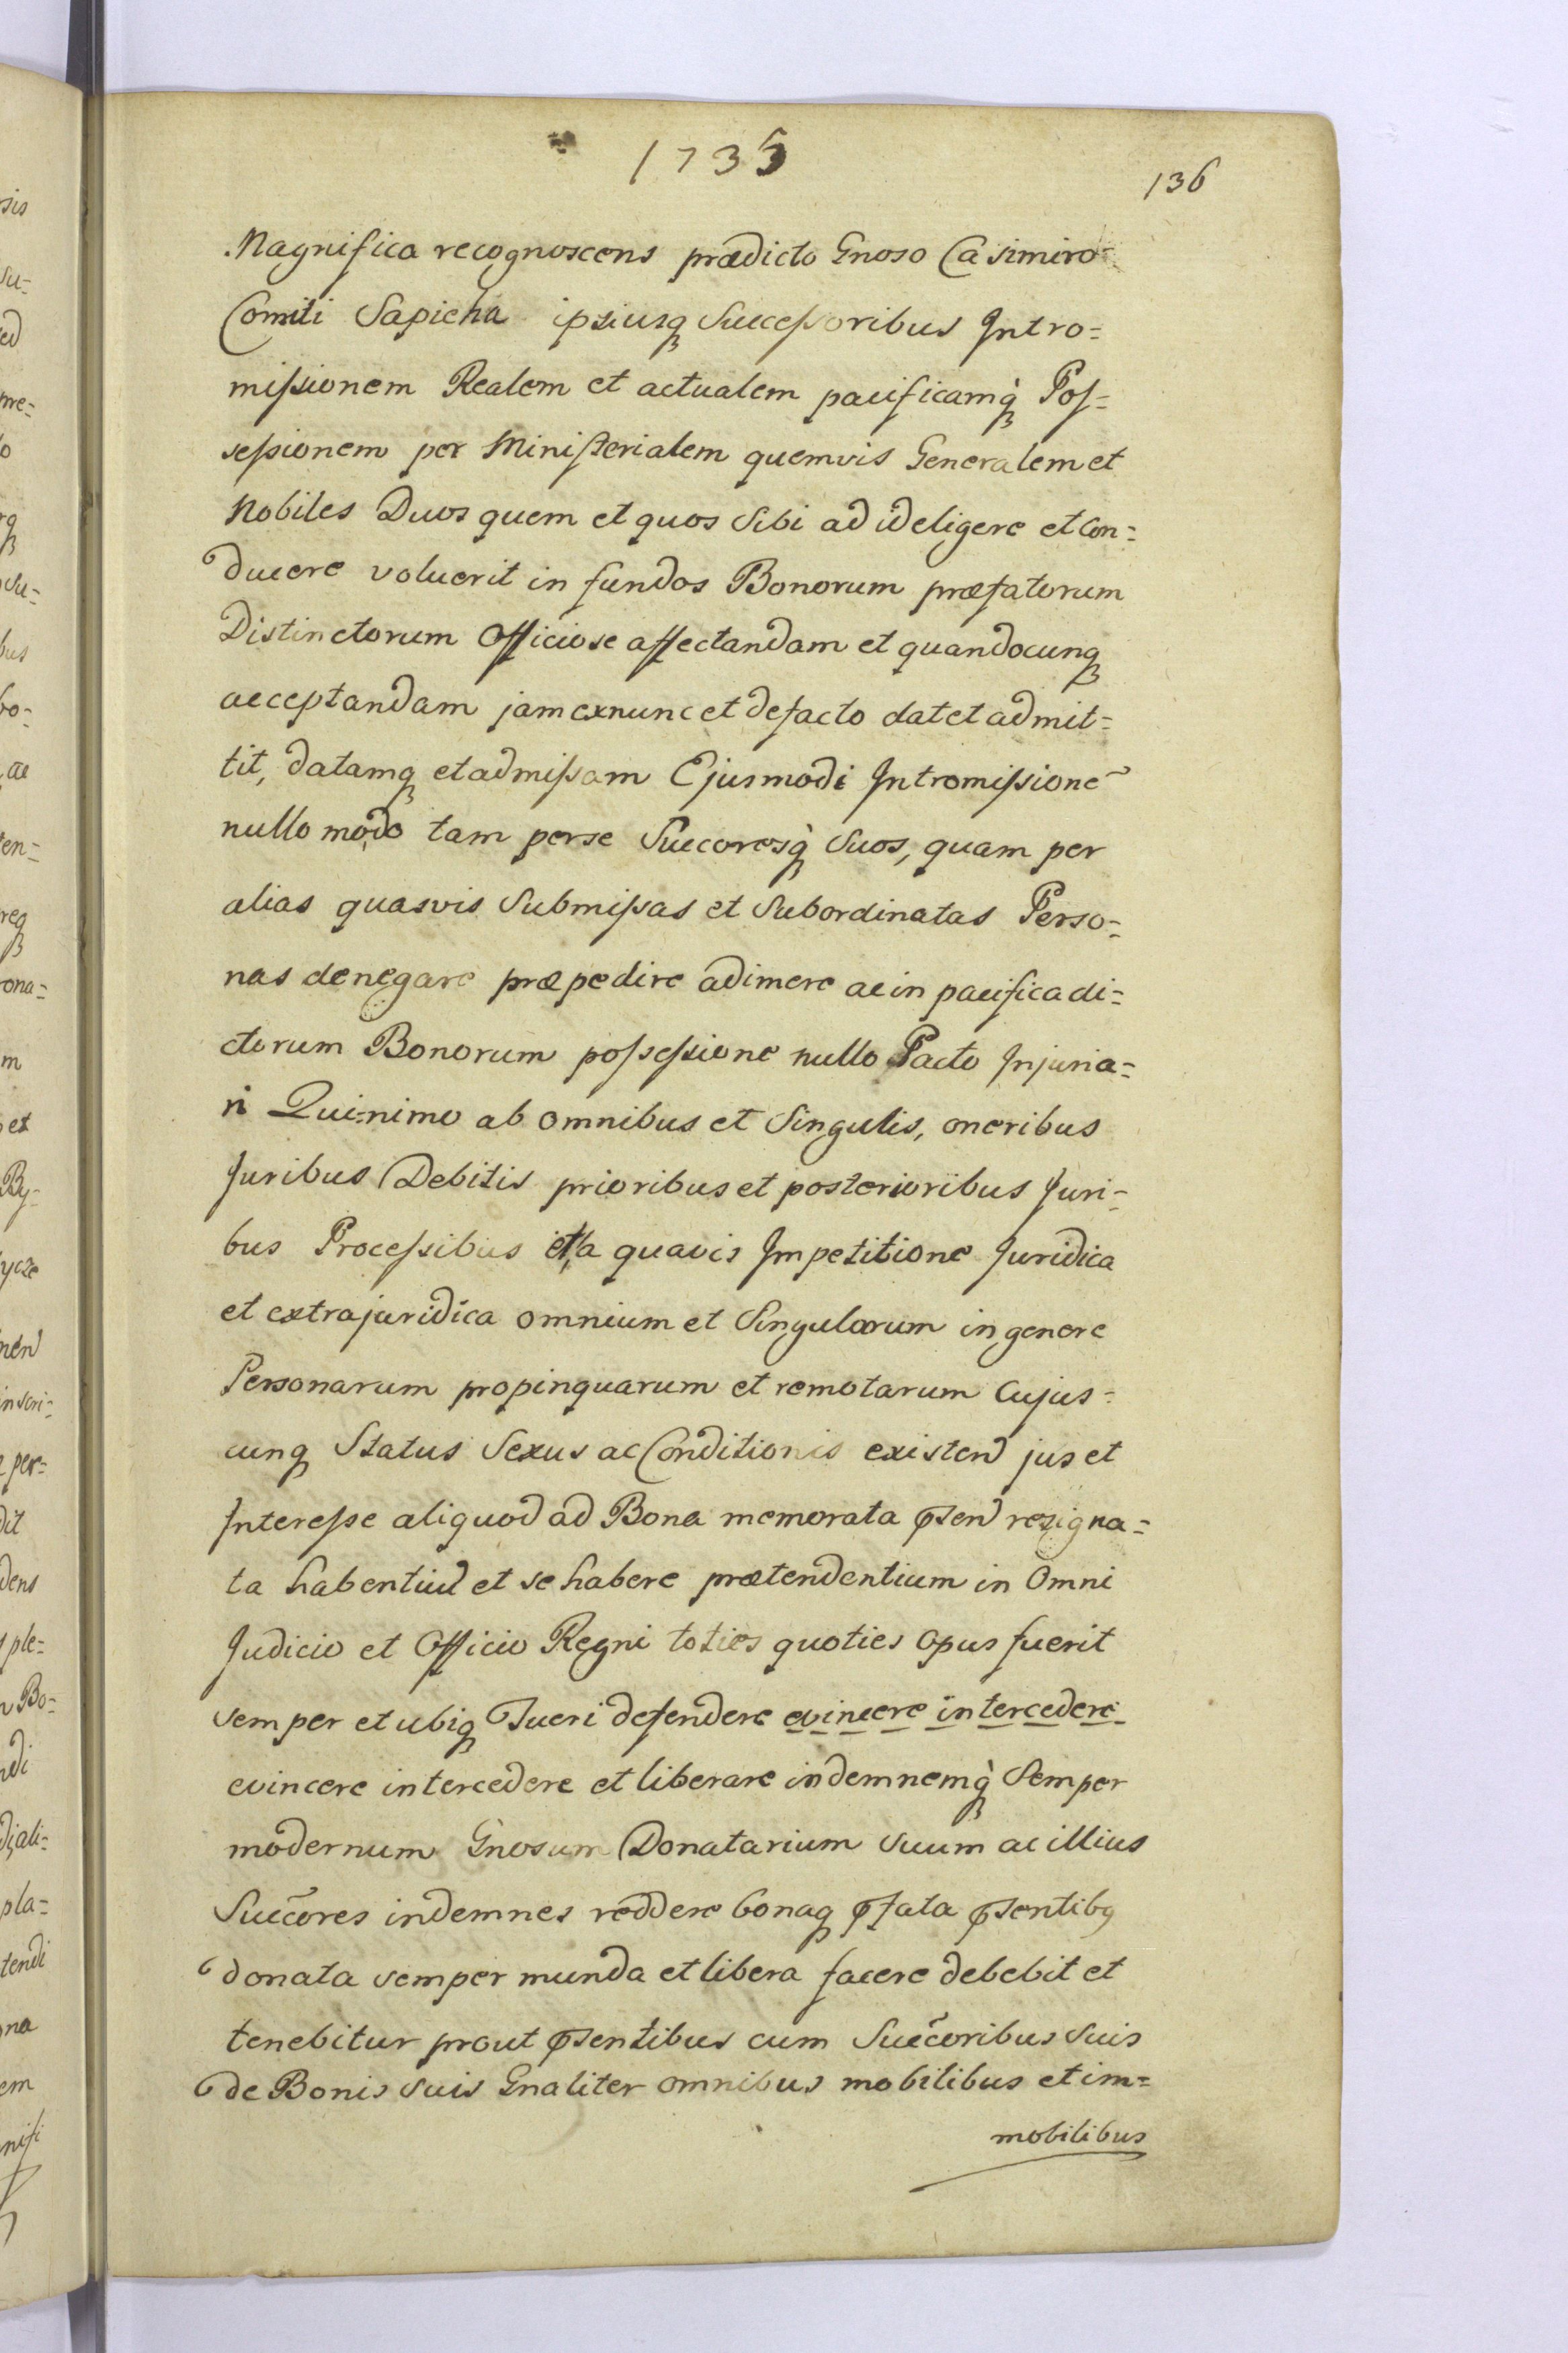 1735
136
Magnifica recognoscens prædicto Gnoso Casimiro
Comiti Sapieha ipsiusq Successoribus Intro=
missionem Realem et actualem pacificamq̀ Pos=
sessionem per Ministerialem quemvis Generalem et
Nobiles Duos quem et quos Sibi ad id eligere et Con=
ducere voluerit in fundos Bonorum præfatorum
Distinctorum Officiose affectandam et quandocunq
acceptandam jam exnunc et defacto dat et admit=
tit, datamq et admissam Ejusmodi Intromissionē
nullo modo tam per se Succoresq̀ Suos, quam per
alias quasvis Submissas et Subordinatas Perso=
nas denegare præpedire adimere ac in pacifica di=
ctorum Bonorum possessione nullo Pacto Injuria=
ri Quinimo ab omnibus et Singulis, oneribus
Juribus Debitis prioribus et posterioribus Juri=
bus Processibus et a quavis Impetitione Juridica
et extrajuridica omnium et Singularum in genere
Personarum propinquarum et remotarum Cujus=
cunq Status Sexus ac Conditionis existen jus et
Interesse aliquod ad Bona memorata psen resigna=
ta habentiū et se habere prætendentium in Omni
Judicio et Officio Regni toties quoties opus fuerit
semper et ubiq Tueri defendere evincere intercedere
evincere intercedere et liberare indemnemq̀ Semper
modernum Gnosum Donatarium Suum ac illius
Succ̄ores indemnes reddere bonaq pfata psentibq
donata semper munda et libera facere debebit et
tenebitur prout psentibus cum Succ̄oribus Suis
de Bonis Suis Gnaliter omnibus mobilibus et im=
mobilibus